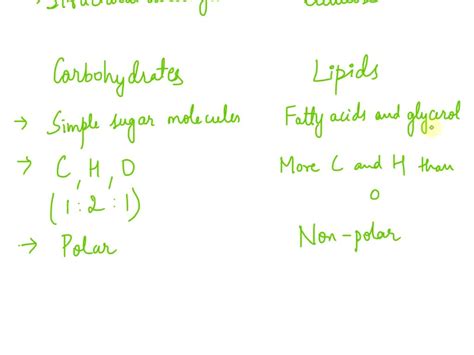 Carbohydrates Lipids
→ Simple sugar molecules Fatty acids and glycerol
→ C, H, O More C and H than
(1:2:1) O
→ Polar Non-polar